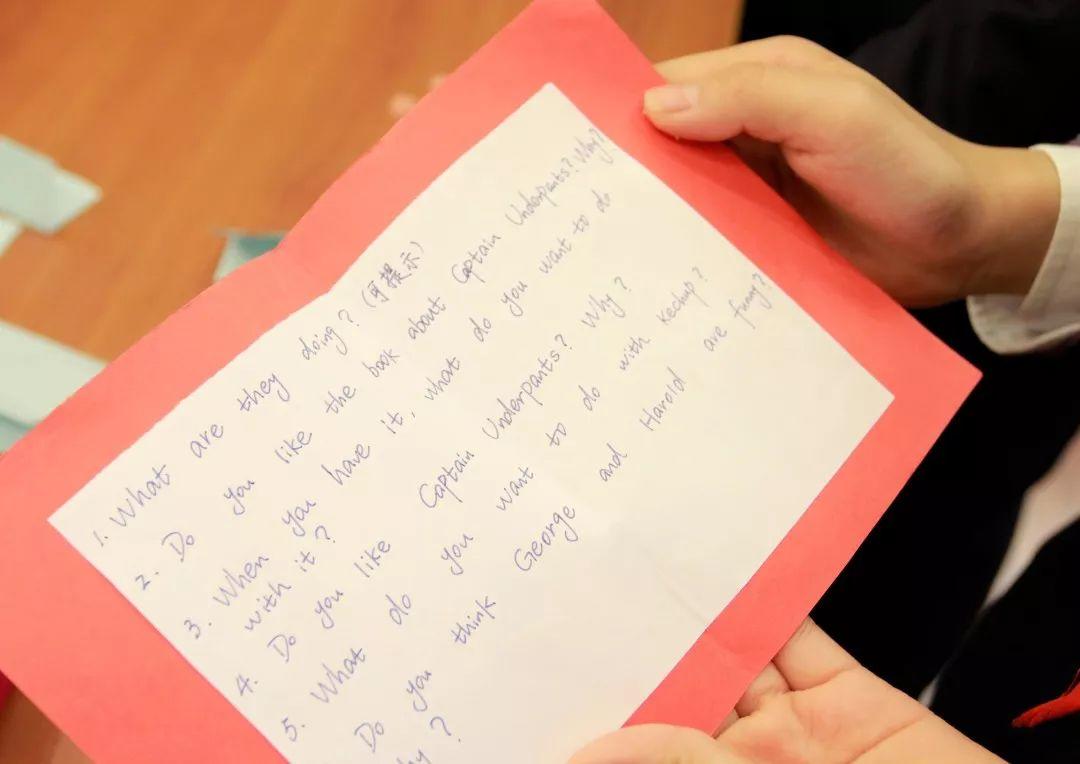 1. What are they doing? (可提示)
2. Do you like the book about Captain Underpants? Why?
3. When you have it, what do you want to do
with it?
4. Do you like Captain Underpants? Why?
5. What do you want to do with kechup?
Do you think George and Harold are funny?
?